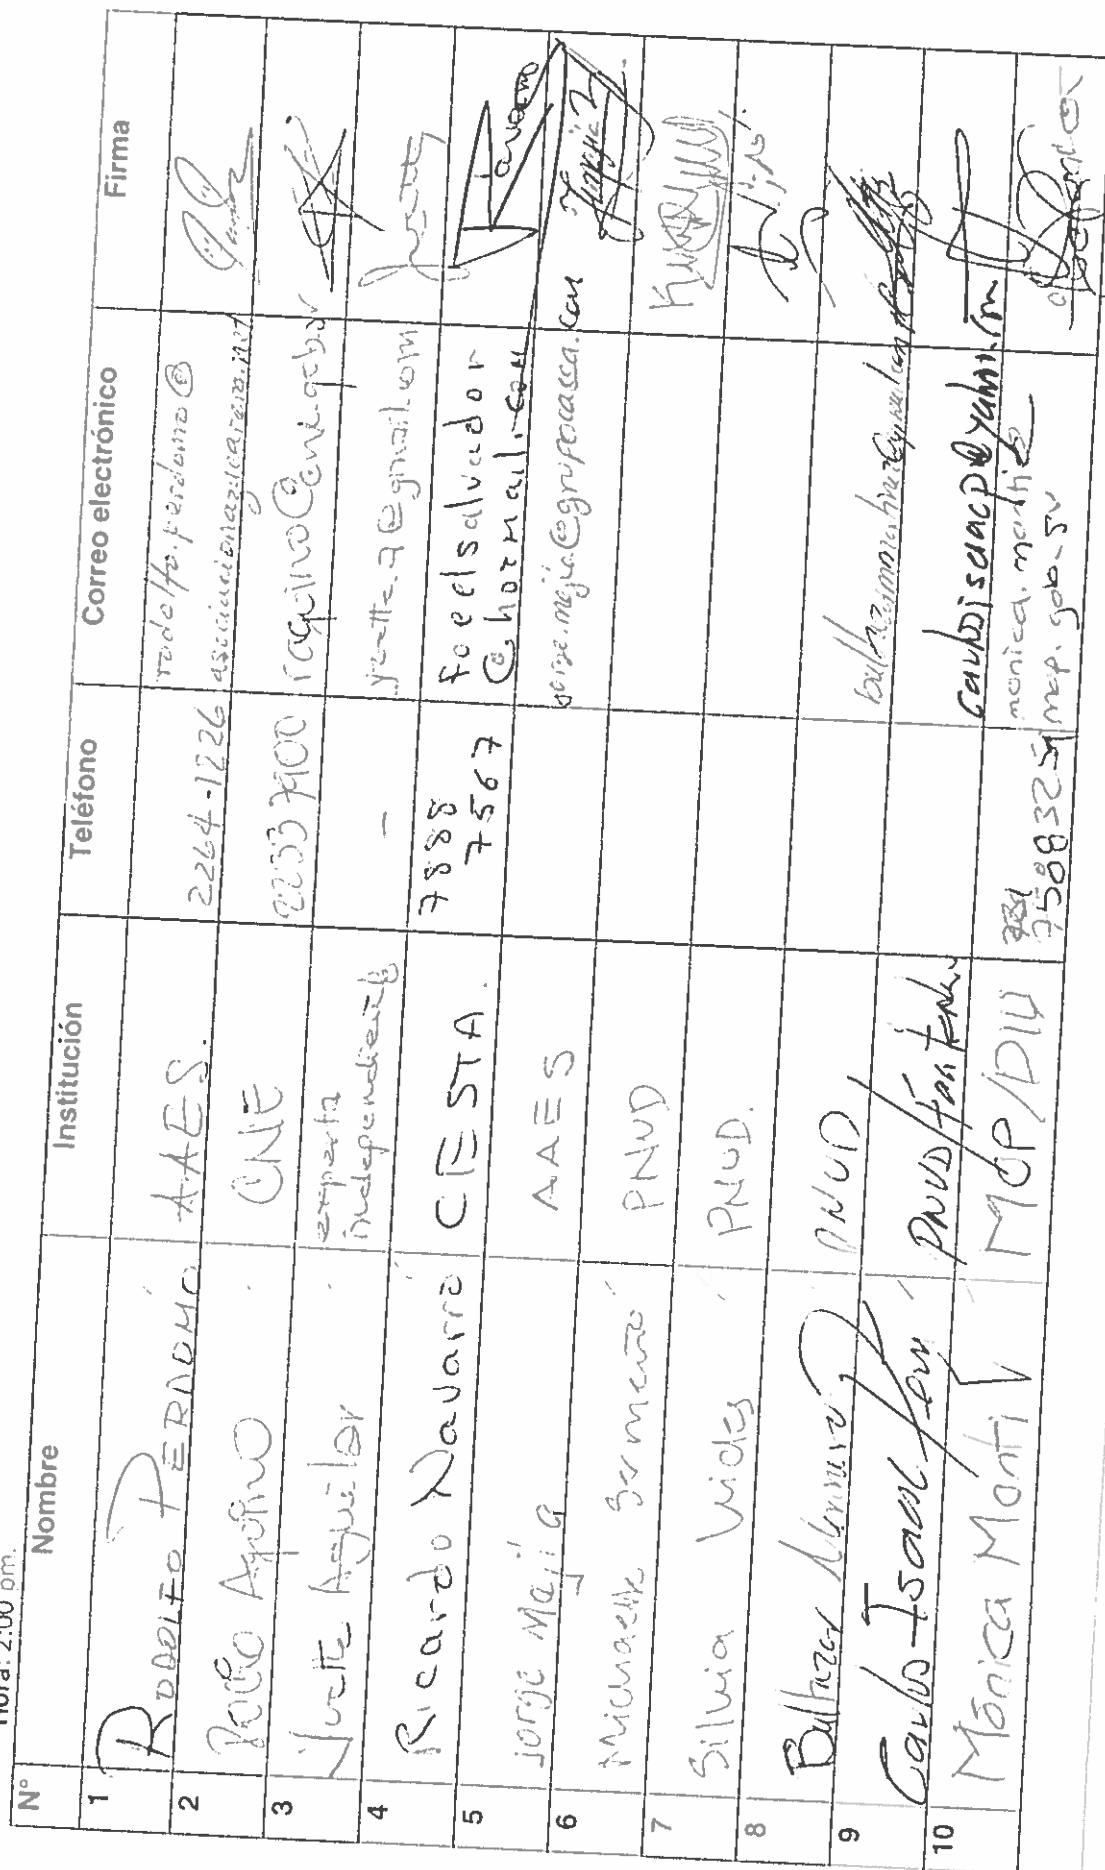 Hora: 2:00 pm.
N° Nombre Institución Teléfono Correo electrónico Firma
1 RODOLFO PERDOMO AAES. 2264-1226 rodolfo.perdomo@
asociacionazucarera.net
2 Rocío Aquino CNE 2233 7900 raquino@cne.gob.sv
3 Yvette Aguilar experta
independiente - yvette.a@gmail.com
4 Ricardo Navarro CESTA. 7888
7567 foeelsalvador
@hotmail.com Navarro
5 Jorge Mejía AAES jorge.mejia@grupocassa.com
6 Michaelle Sermeño PNUD
7 Silvia Vides PNUD.
8 Baltazar PNUD
9 Carlos Isaac Pérez PNUD/ carlosisaacp@yahoo.com
10 Mónica Monti MOP/DIU 75083254 monica.monti@
mop.gob.sv